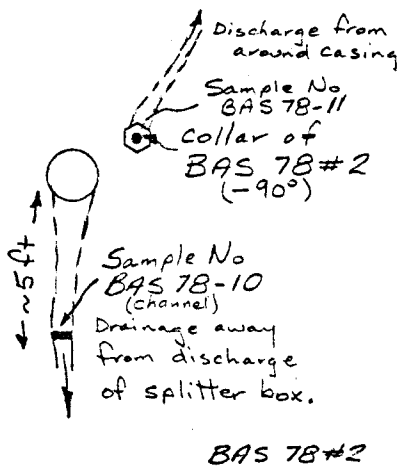 Discharge from
around casing
Sample No
BAS 78-11
collar of
BAS 78#2
(-90°)
~5ft
Sample No
BAS 78-10
(channel)
Drainage away
from discharge
of splitter box.
BAS 78#2